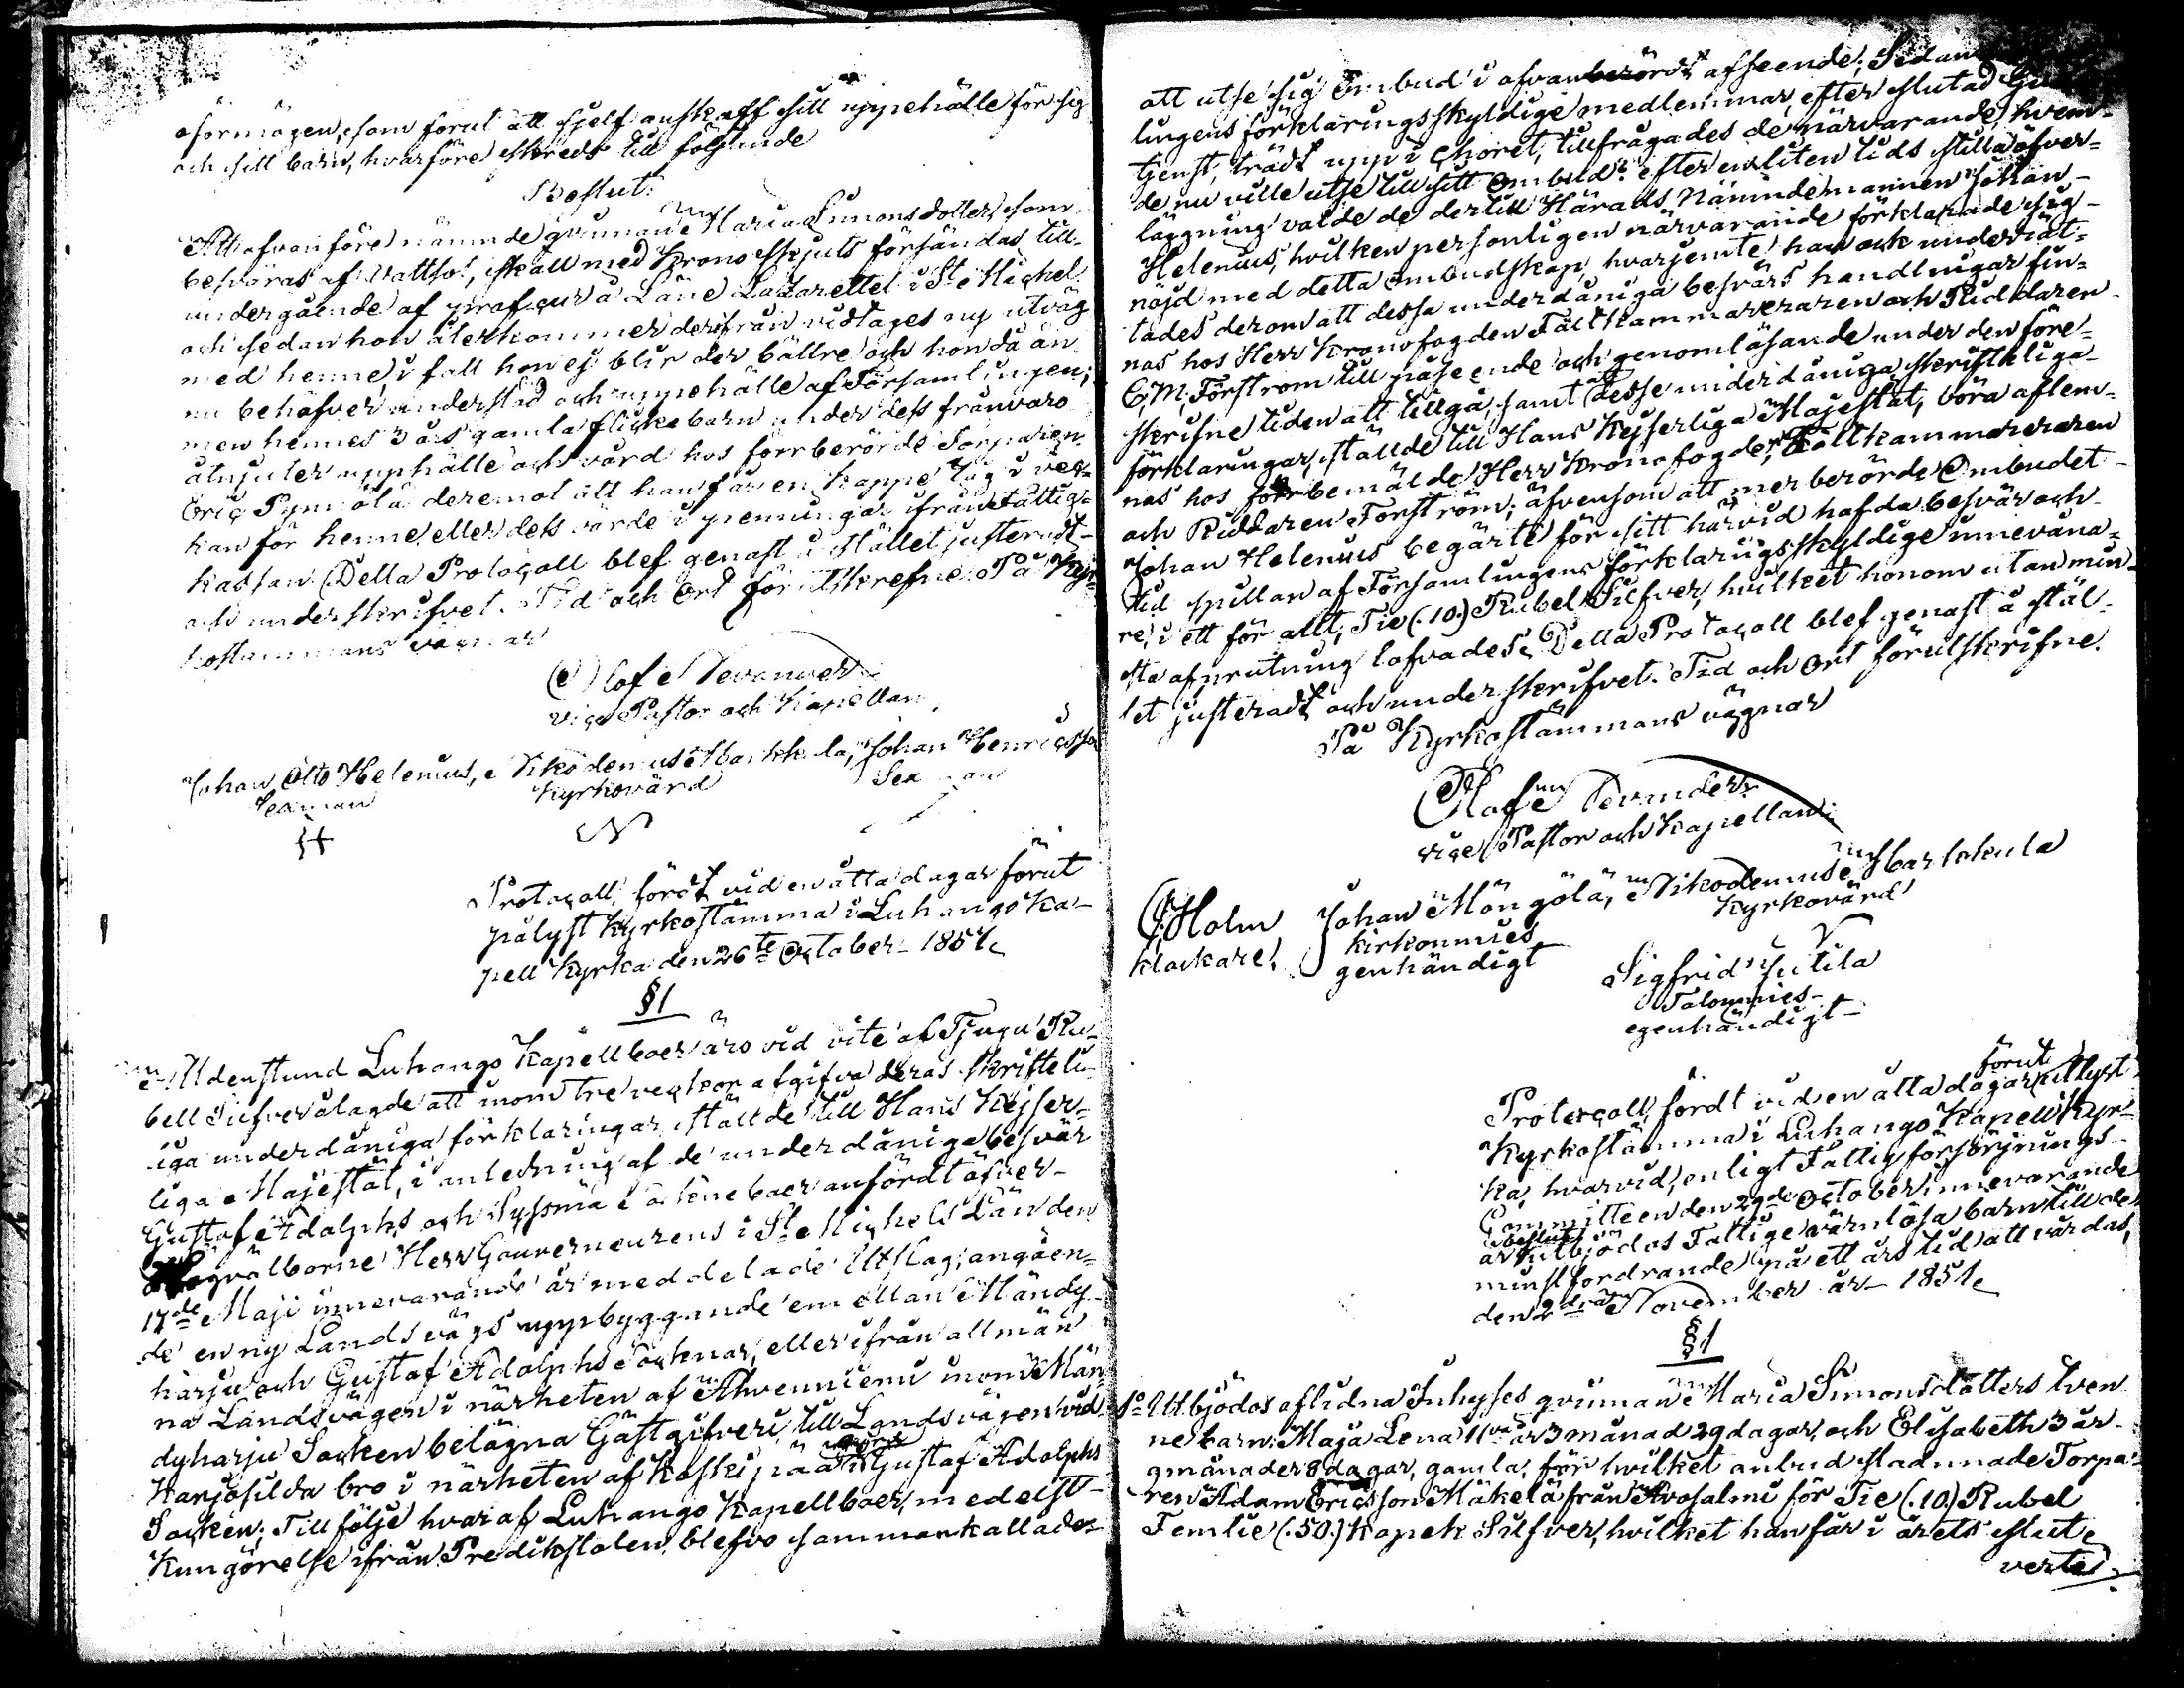 förmågen, som forut att sjelf anskaff sitt uppehälle för sig
och sitt barn, hvarföre skreds till följande
Beslut:
Att ofvanföre nämnde qvinnan Maria Simonsdotter, som
besväras af Vattso, skall med Kronoskjuts försändas till
undergående af profcur å Läne Lazarettet i St Michel
och sedan hon återkommer derifrån vidtages ny utväg
med henne, i fall hon ej blir der bättre och hon då än-
nu behöfver understöd och uppehälle af Församlingen;
men hennes 3 års gamla flickebarn under dess frånvaro
åtnjuter upphälle och vård hos förrberörde Torparen
Eric Pynnölä deremot att han får en Kappe Råg i vec-
kan för henne eller dess värde i penningar ifrån Fattig-
kassan. Detta Protocoll blef genast i stället justeradt
och underskrifvet. Tid och Ort förutskrefne. På Kyr-
kostämmans vägnar
Olof Nevander
Vice Pastor och Kapellan.
Johan Otto Helenius, Nikodemus Harkkala, Johan Henricsson
Sexman Kyrkovärd Sexman
H N
Protocoll, fördt vid en åtta dagar förut
pålyst Kyrkostämma i Luhango Ka-
pell Kyrka den 26te October 1851.
§1
Alldenstund Luhango Kapellboer äro vid vite af Tjugu Ru-
bell Silfver ålagde att inom tre veckor afgifva deras skriftel-
iga underdåniga förklaringar ställde till Hans Kejser-
liga Majestät, i anledning af de underdåniga besvär
Gustaf Adolphs och Sysmä Socknebaer anfördt öfver
Högvälborne Herr Gouverneurens i St Michels Län den
17de Maji innevarande år meddelade Utslag, angåen-
de en ny Landsvägs uppbyggande emellan Mändy-
harju och Gustaf Adolphs Socknar, eller ifrån allmän-
na Landsvägen i närheten af Ahvenniemi inom Män-
dyharju Socken belägna Gästgifveri, till Landsvägen vid
Karjosilda bro i närheten af Koskipää i Gustaf Adolphs
Socken; Till följe hvaraf Luhango Kapellboer, medelst
Kungörelse ifrån Predikstolen, blefvo sammankallade
att utse sig Ombud i ofvanberördt afseende; Sedan
lingens förklaringsskyldige medlemmar, efter slutad Gu
tjenst, trädt upp i Choret, tillfrågades de närvarande, hvem
de nu ville utse till sitt Ombud? efter en liten tids stilla öfver-
läggning valde de dertill Härads Nämndemannen Johan
Helenius, hvilken personligen närvarande förklarade sig
nöjd med detta Ombudskap, hvarjemte han ock underrät-
tades derom att dessa underdåniga besvärs handlingar fin-
nas hos Herr Kronofogden Fältkammereraren och Riddaren
C. M. Forström till påseende och genomläsande under den före-
skrifne tiden att tillgå, samt desse underdåniga skrifteliga
förklaringar, ställde till Hans Kejserliga Majestät, böra aflem-
nas hos förrbemälde Herr Kronofogden, Fältkammereraren
och Riddaren Forström, äfvensom att merberörde Ombudet
Johan Helenius begärte för sitt härvid hafda besvär och
tid spillan af Församlingens förklaringsskyldige innevåna-
re, i ett för allt, Tie (10.) Rubel Silfver, hvilket honom utan min-
sta afprutning lofvades. Detta Protocoll blef genast å stäl-
let justeradt och underskrifvet. Tid och Ort förutskrifne.
På Kyrkostämmans vägnar
Olof Nevander
vice Pastor och Kapellan.
C. Holm Johan Möngölä, Nikodemus Harkkala
Klockare, kirkonmies Kyrkovärd
genhändigt N
Sigfrid Jutila
Talonmies
egenhändigt
Protocoll, fördt vid en åtta dagar förut utlyst
Kyrkostämma i Luhango Kapell Kyr-
ka, hvarvid, enligt Fattigförsörjnings
Committeen den 29de October innevarande
år beslut, utbjödos Fattige värnlösa barn till de
minst fordrande på ett års tid att vårdas,
den 2dra November år 1851.
§1
1o Utbjödos aflidna Inhyses qvinnan Maria Simonsdotters tven-
ne barn: Maja Lena 11va år 3 månad 29 dagar, och Elisabeth 3 år
9 månader 8 dagar, gamla, för hvilket anbud stadnnade Torpa-
ren Adam Ericsson Mäkelä från Avosalmi för Tie (10.) Rubel
Femtie (50.) Kopek Silfver, hvilket han får i årets slut.
verte